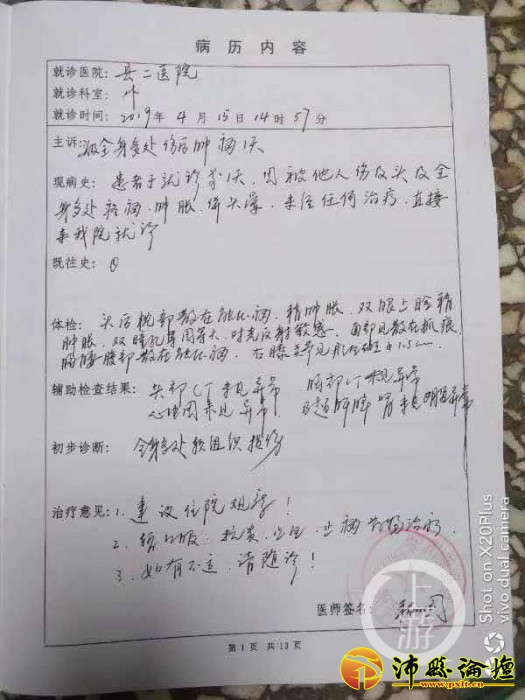 病历内容
就诊医院：县二医院
就诊科室：外
就诊时间：2019年4月15日14时57分
主诉：全身多处伤后肿痛1天
现病史：患者于就诊前1天，因被他人伤及头及全
身多处疼痛，肿胀，伴头，未经任何治疗，直接
来我院就诊
既往史：
体检：头后枕部散在压痛，稍肿胀，双眼上睑稍
肿胀，双瞳孔等圆等大，对光反射敏感，面部见散在抓痕
腰部散在压痛，右膝 1.5cm
辅助检查结果：头部CT未见异常 胸部CT未见异常
心电图未见异常 未见明显异常
初步诊断：全身多处软组织损伤
治疗意见：1、建议住院观察！
2、口服：抗炎、止痛药物治疗，
3、如有不适，请随诊！
医师签名：
第1页 共13页
上游
Shot on X20Plus
vivo dual camera
沛县论坛
www.pxlt.cn